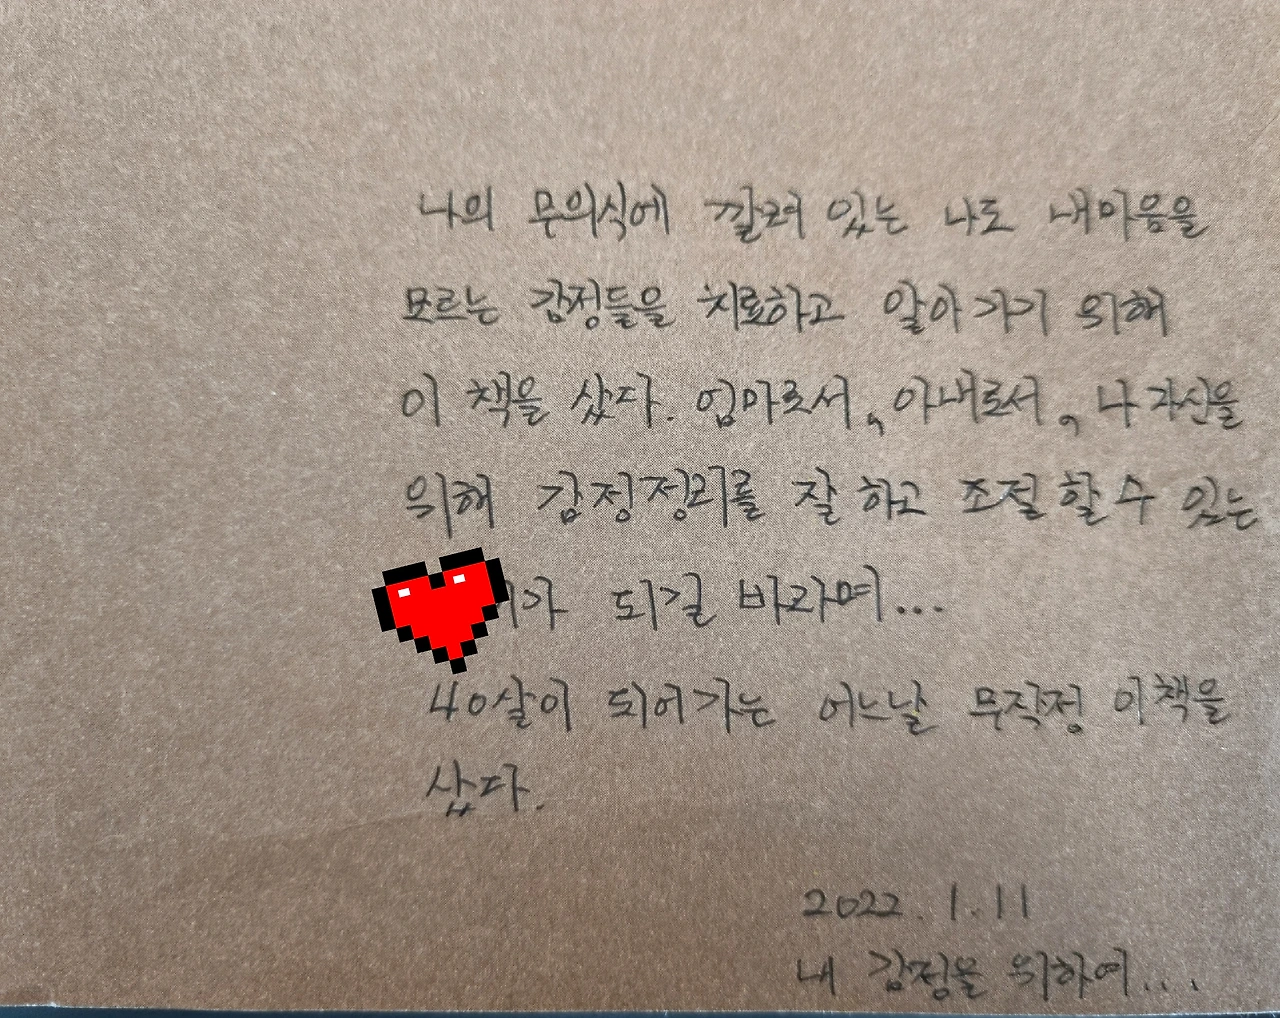 나의 무의식에 깔려 있는 나도 내마음을
모르는 감정들을 치료하고 알아가기 위해
이 책을 샀다. 엄마로서, 아내로서, 나 자신을
위해 감정정리를 잘 하고 조절 할 수 있는
되길 바라며...
40살이 되어가는 어느날 무작정 이책을
샀다.
2022. 1. 11
내 감정을 위하여...